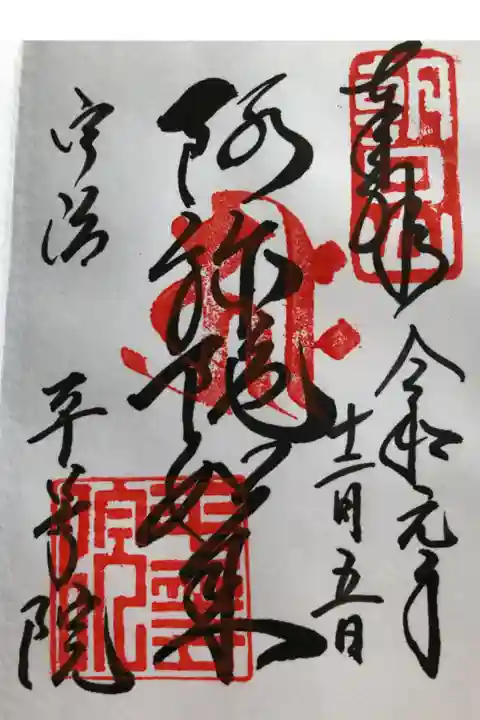 奉拝
令和元年
十二月五日
阿弥陀如来
宇治
平等院
朝日山